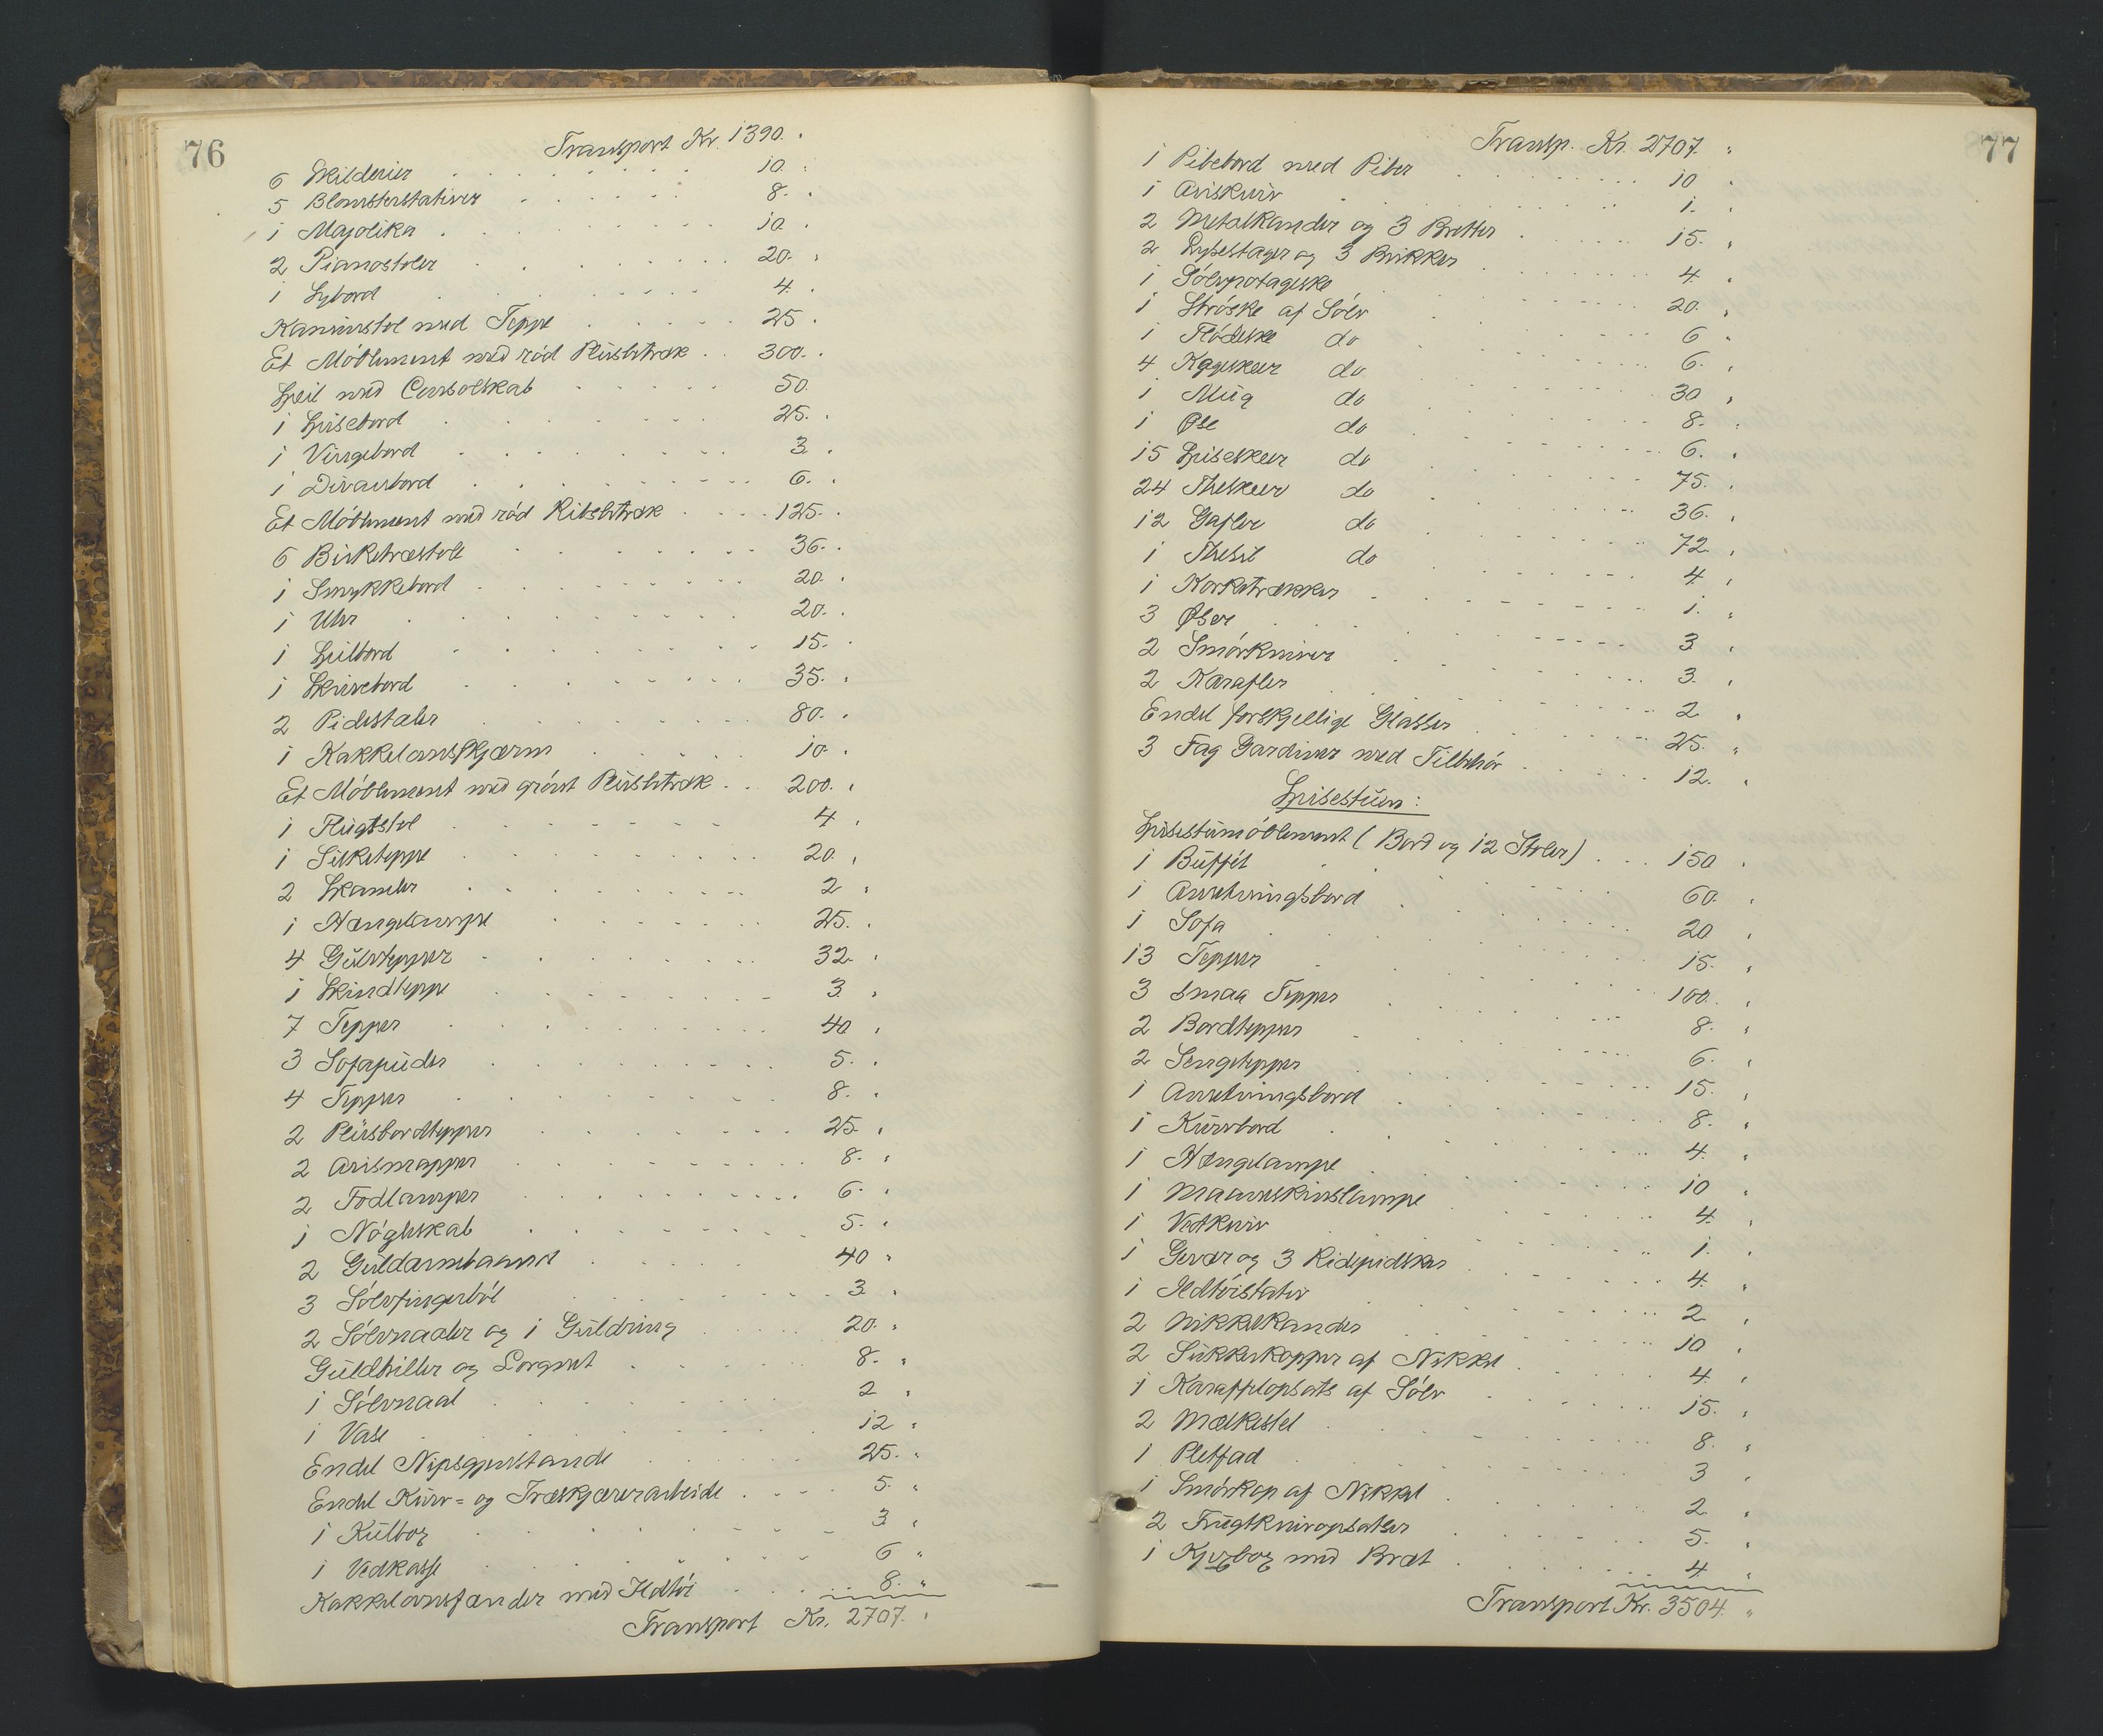 76
Transport Kr. 1390.
6 Skilderier 10.
5 Blomsterstativer 8.
1 Majolika 10.
2 Pianostoler 20.
1 Sybord 4.
Kaminstol med Teppe 25.
Et Möblement med röd Plüshtræk 300.
Speil med Consolskab 50.
1 Spisebord 25.
1 Vingebord 3.
1 Divanbord 6.
Et Möblement med röd Ribshtræk 125.
6 Birketræstole 36.
1 Smykkebord 20.
1 Uhr 20.
1 Spilbord 15.
1 Skrivebord 35.
2 Pidestaler 80.
1 Kakkelovnsskjærm 10.
Et Möblement med grönt Plüshtræk 200.
1 Flugtstol 4
1 Silketeppe 20.
2 Skamler 2
1 Hængelampe 25.
4 Gulvtepper 32.
1 Skindteppe 3.
7 Tepper 40
3 Sofapuder 5.
4 Tepper 8.
2 Plüsbordtepper 25.
2 Avismapper 8.
2 Fodlamper 6.
1 Nögleskab 5.
2 Guldarmbaand 40
3 Sölvfingerböl 3.
2 Sölvnaaler og 1 Guldring 20.
Guldbriller og Lorgnet 8.
1 Sölvnaal 2
1 Vase 12
Endel Nipsgjenstande 25.
Endel Kurv= og Træskjærerarbeide 5.
1 Kulbox 3.
1 Vedkasse 6
Kakkelovnsfænder med Ildtöi 8.
Transport Kr. 2707.
77
Transp. Kr. 2707.
1 Pibebord med Piber 10
1 Aviskurv 1.
2 Metalkander og 3 Bretter 15.
2 Lysestager og 3 Brikker 4.
1 Sölvpotageske 20.
1 Ströske af Sölv 6
1 Flödeske do 6.
4 Kageskeer do 30
1 Mug do 8.
1 Øse do 6.
15 Spiseskeer do 75.
24 Theskeer do 36.
12 Gafler do 72.
1 Thesil do 4.
1 Korketrækker 1.
3 Øser 3
2 Smörkniver 3.
2 Karafler 2
Endel forskjellige Glasser 25.
3 Fag Gardiner med Tilbehör 12.
Spisestuen:
Spisestumöblement (Bord og 12 Stoler) 150
1 Buffét 60.
1 Anretningsbord 20
1 Sofa 15.
13 Tepper 100.
3 smaa Tepper 8.
2 Bordtepper 6.
2 Sengetepper 15.
1 Anretningsbord 8.
1 Kurvbord 4.
1 Hængelampe 10
1 Maaneskinslampe 4.
1 Vedkurv 1.
1 Gevær og 3 Ridepidsker 4.
1 Ildtöistativ 2
2 Nikkelkander 10
2 Sukkerkopper af Nikkel 4.
1 Karaffelopsats af Sölv 15.
2 Melkestel 8.
1 Pletfad 3
1 Smörkop af Nikkel 2
2 Frugtknivopsatser 5.
1 Kjexbox med Bræt 4.
Transport Kr. 3504.